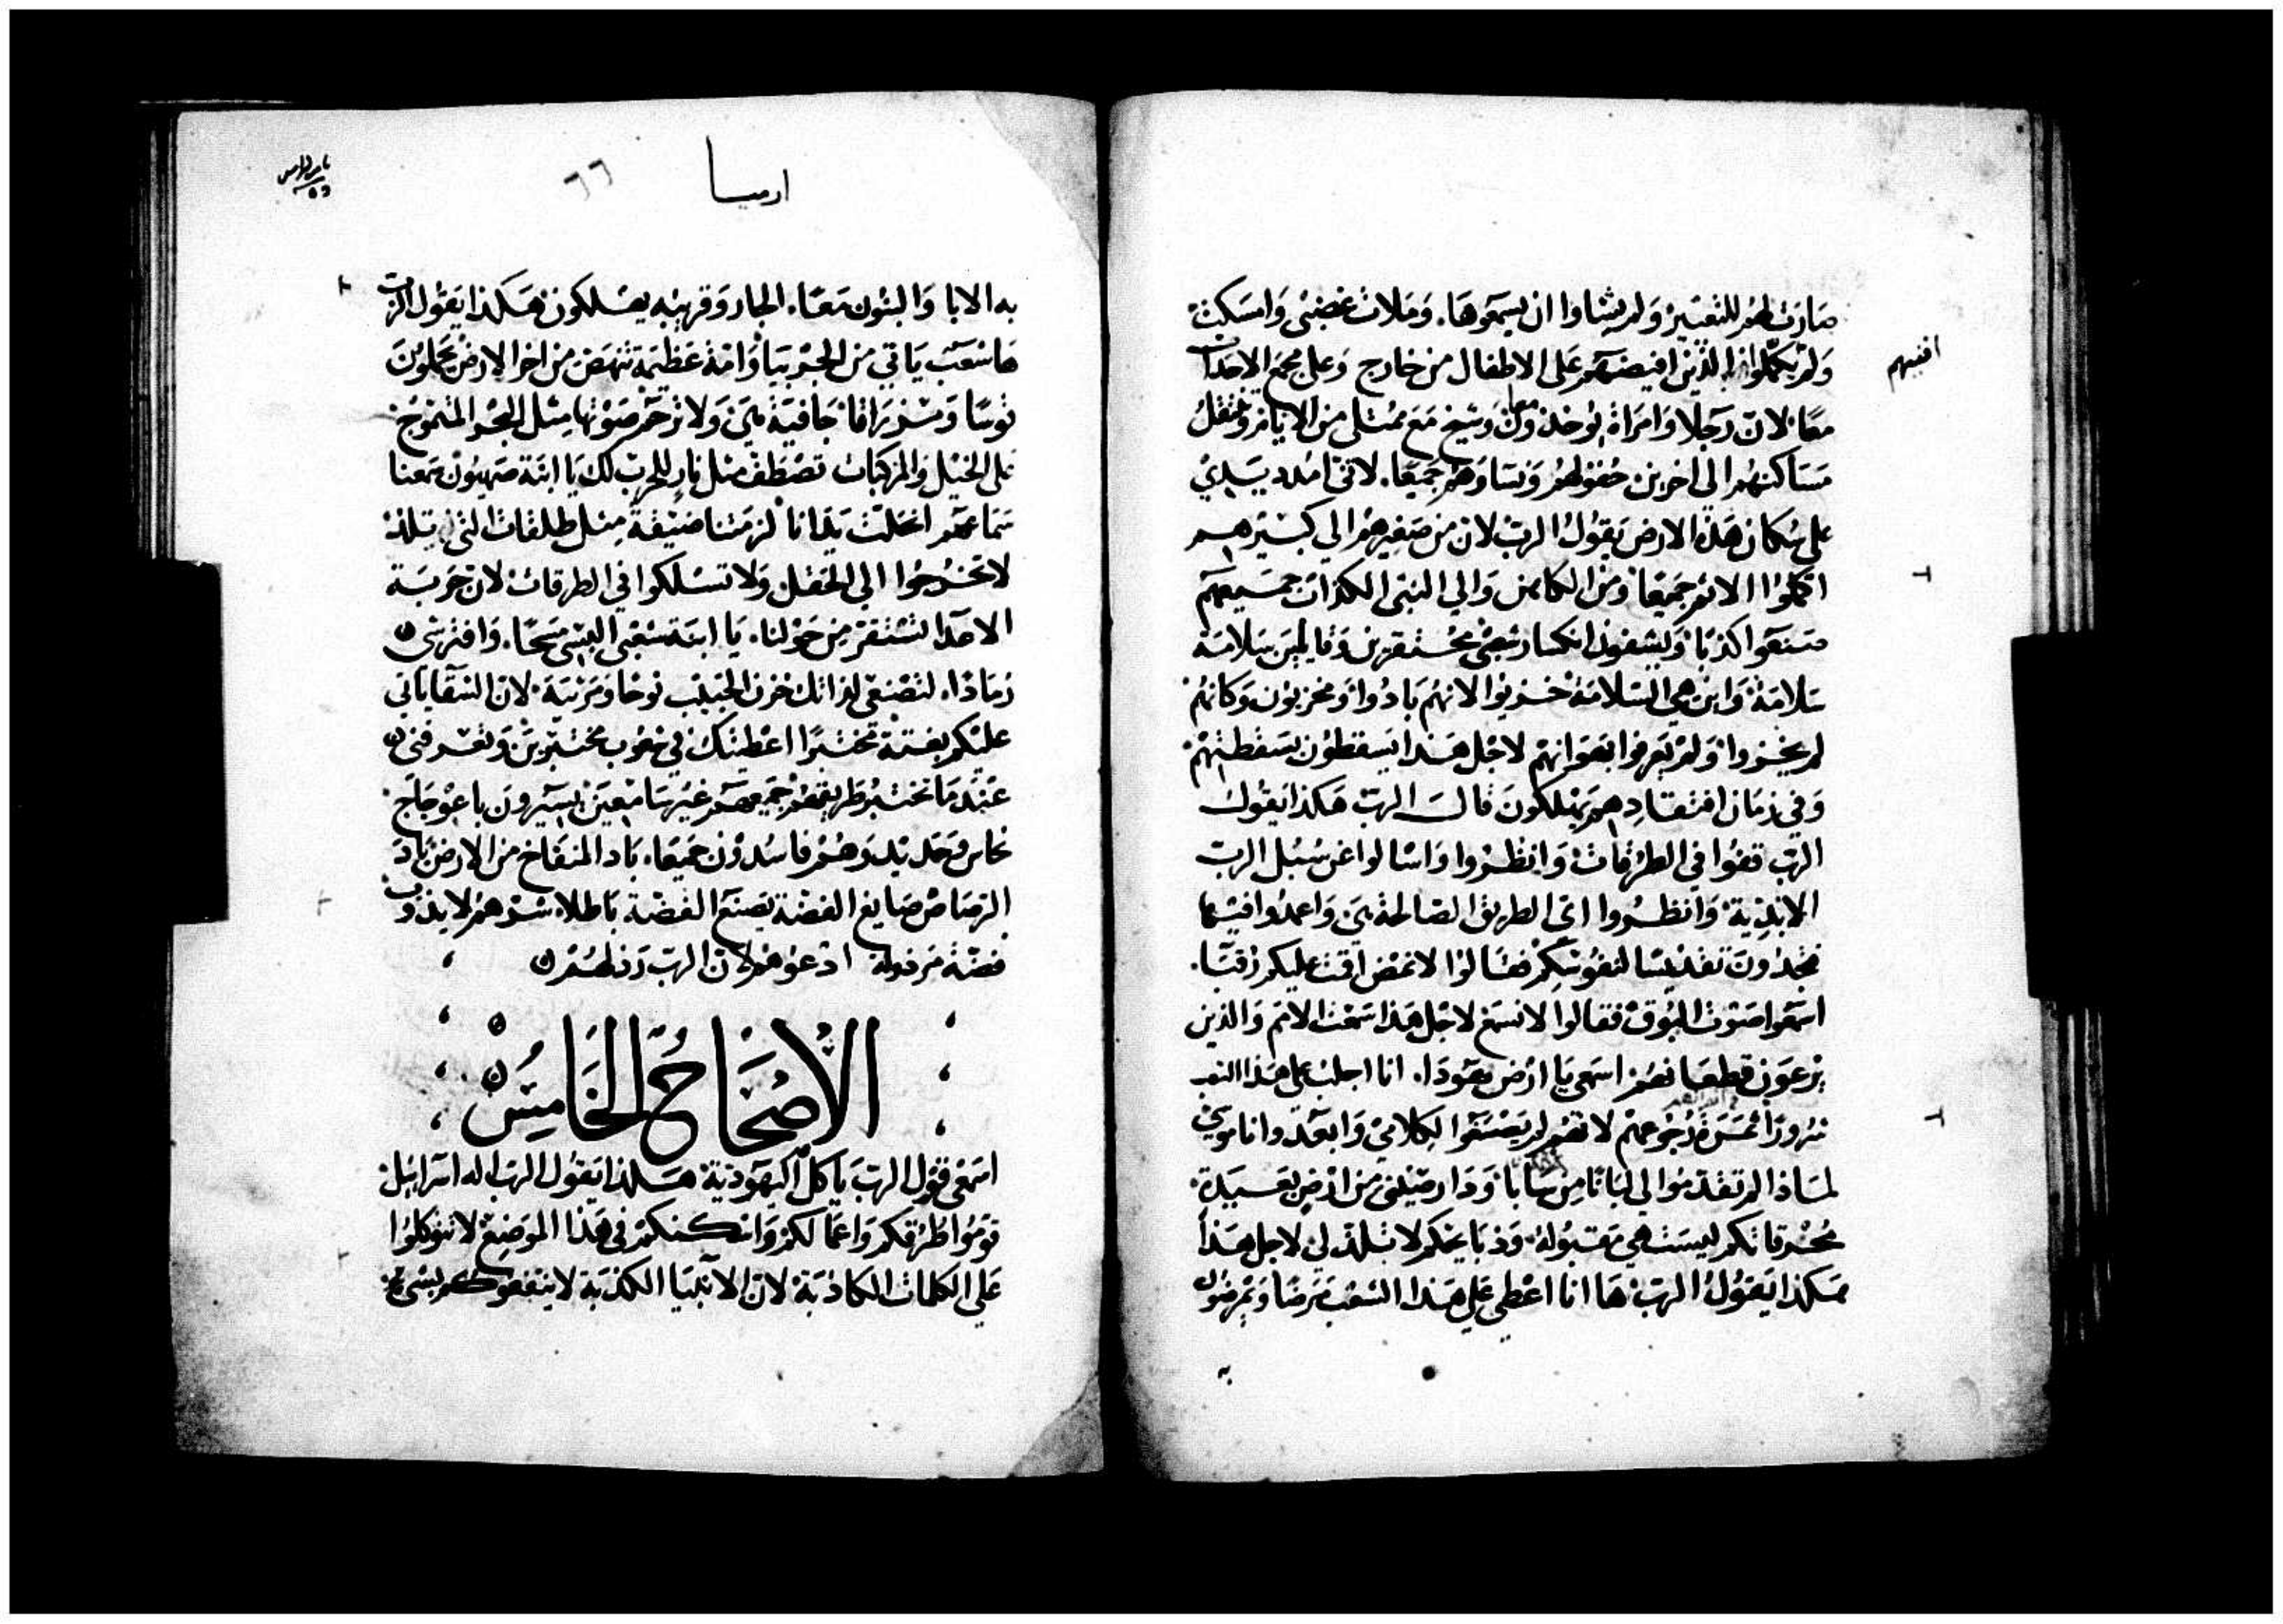 صارت لهم للتعيير ولم يشاوا ان يسمعوها. وملات غضبي وامسكت
ولم يكملوا الذين افيضهم على الاطفال من خارج وعلى مجمع الاحداث
افنيهم
معا لان رجلا وامراة يوخذون معا وشيخ مع ممتلي من الايام وتنتقل
مساكنهم الى اخرين حقولهم ونساوهم جميعا. لاني امدد يدي
على سكان هذه الارض يقول الرب لان من صغيرهم الى كبيرهم
اكملوا الاثم جميعا ومن الكاهن والي النبي الكذاب جميعهم
صنعوا كذبا ويشفون انكسار شعبي محتقرين وقايلين سلامة
سلامة واين هي السلامة خزيوا لانهم بادوا ومخزيون وكانهم
لم يخزوا ولم يعرفوا بهوانهم لاجل هذا يسقطون بسقطتهم
وفي زمان افتقادهم يهلكون قال الرب هكذا يقول
الرب قفوا في الطرقات وانظروا واسالوا عن سبل الرب
الابدية وانظروا اي الطريق الصالحة هي واعمدوا فيها
فتجدون تقديسا لنفوسكم فقالوا لا نمضي اقمت عليكم رقبا.
اسمعوا صوت البوق فقالوا لا نسمع لاجل هذا سمعت الامم والذين
يرعون قطعانهم اسمعي يا ارض يهودا. انا اجلب على هذا الشعب
شرورا ثمرة رجوعهم لانهم لم يصنعوا لكلامي وابعدوا ناموسي
لماذا لم تقدموا لي لبانا من سابا ودارصيني من ارض بعيدة
محرقاتكم ليست هي مقبولة وذبايحكم لا تلذ لي لاجل هذا
هكذا يقول الرب ها انا اعطي على هذا الشعب مرضا ويمرضون
به
ارميا
٦٦
به الابا والبنون معا. الجار وقريبه يهلكون هكذا يقول الرب
ها شعب ياتي من الجربيا وامة عظيمة تنهض من اخر الارض يحملون
قوسا ومزراقا جافية هي ولا ترحم صوتها مثل البحر المتموج
على الخيل والمركبات تصطف مثل نار للحرب لك يا ابنة صهيون سمعنا
سماعهم انحلت يدانا لزمتنا ضيقة مثل طلقات التي تلد
لا تخرجوا الى الحقل ولا تسلكوا في الطرقات لان حربة
الاعدا تستقر من حولنا. يا ابنة شعبي البسي مسحا. وافترشي
رمادا. لتصنعي لذاتك حزن الحبيب نوحا ومرثية لان الشقا ياتي
عليكم بغتة مختبرا اعطيتك في شعوب مختبرين وتعرفني
عندما تختبر طريقهم جميعهم غير سامعين يسيرون باعوجاج
نحاس وحديد وهم فاسدون جميعا. باد المنفاخ من الارض باد
الرصاص صايغ الفضة يصنع الفضة باطلا. شرهم لا يذوب
فضة مرذولة ادعوهم لان الرب رذلهم
الاصحاح الخامس
اسمعي قول الرب يا كل اليهودية هكذا يقول الرب اله اسراييل
قوموا طرقكم واعمالكم واسكنكم في هذا الموضع لا تتوكلوا
على الكلمات الكاذبة لان الانبيا الكذبة لا ينفعوكم بشي